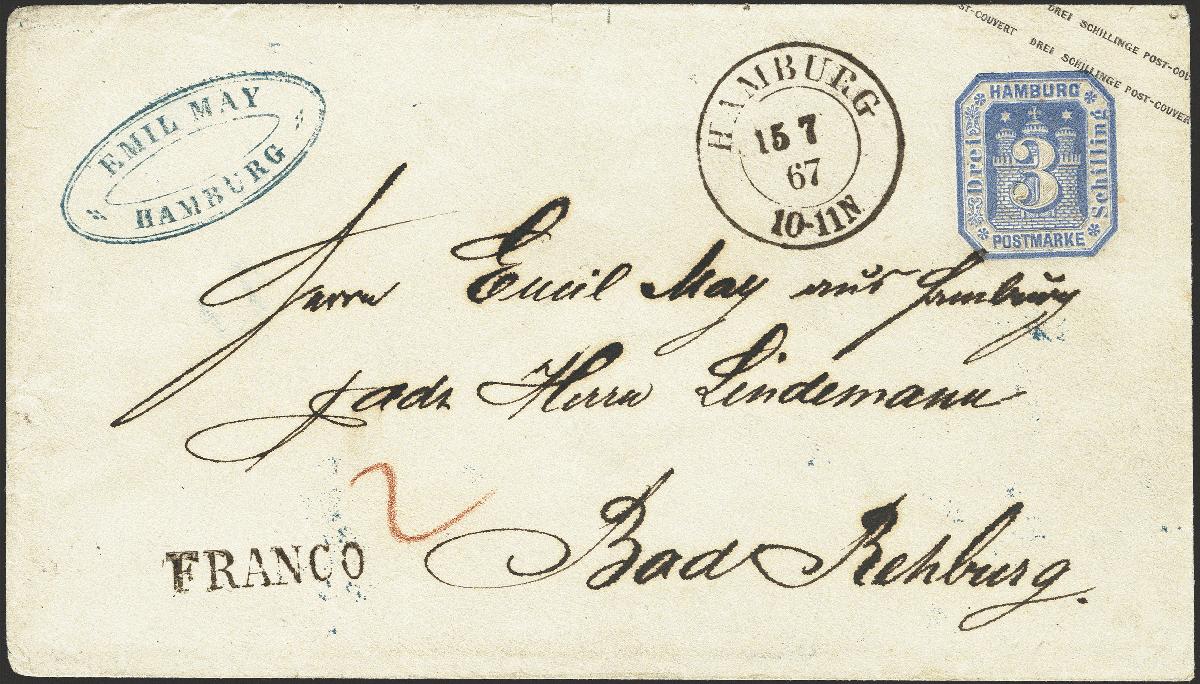 ST-COUVERT DREI SCHILLINGE POST-COUVERT
DREI SCHILLINGE POST-COU
EMIL MAY
HAMBURG
HAMBURG
15 7
67
10-11N
HAMBURG
Drei
3
Schilling
POSTMARKE
Herrn Emil May aus Hamburg
adr Herrn Lindemann
2
FRANCO
Bad Rehburg.